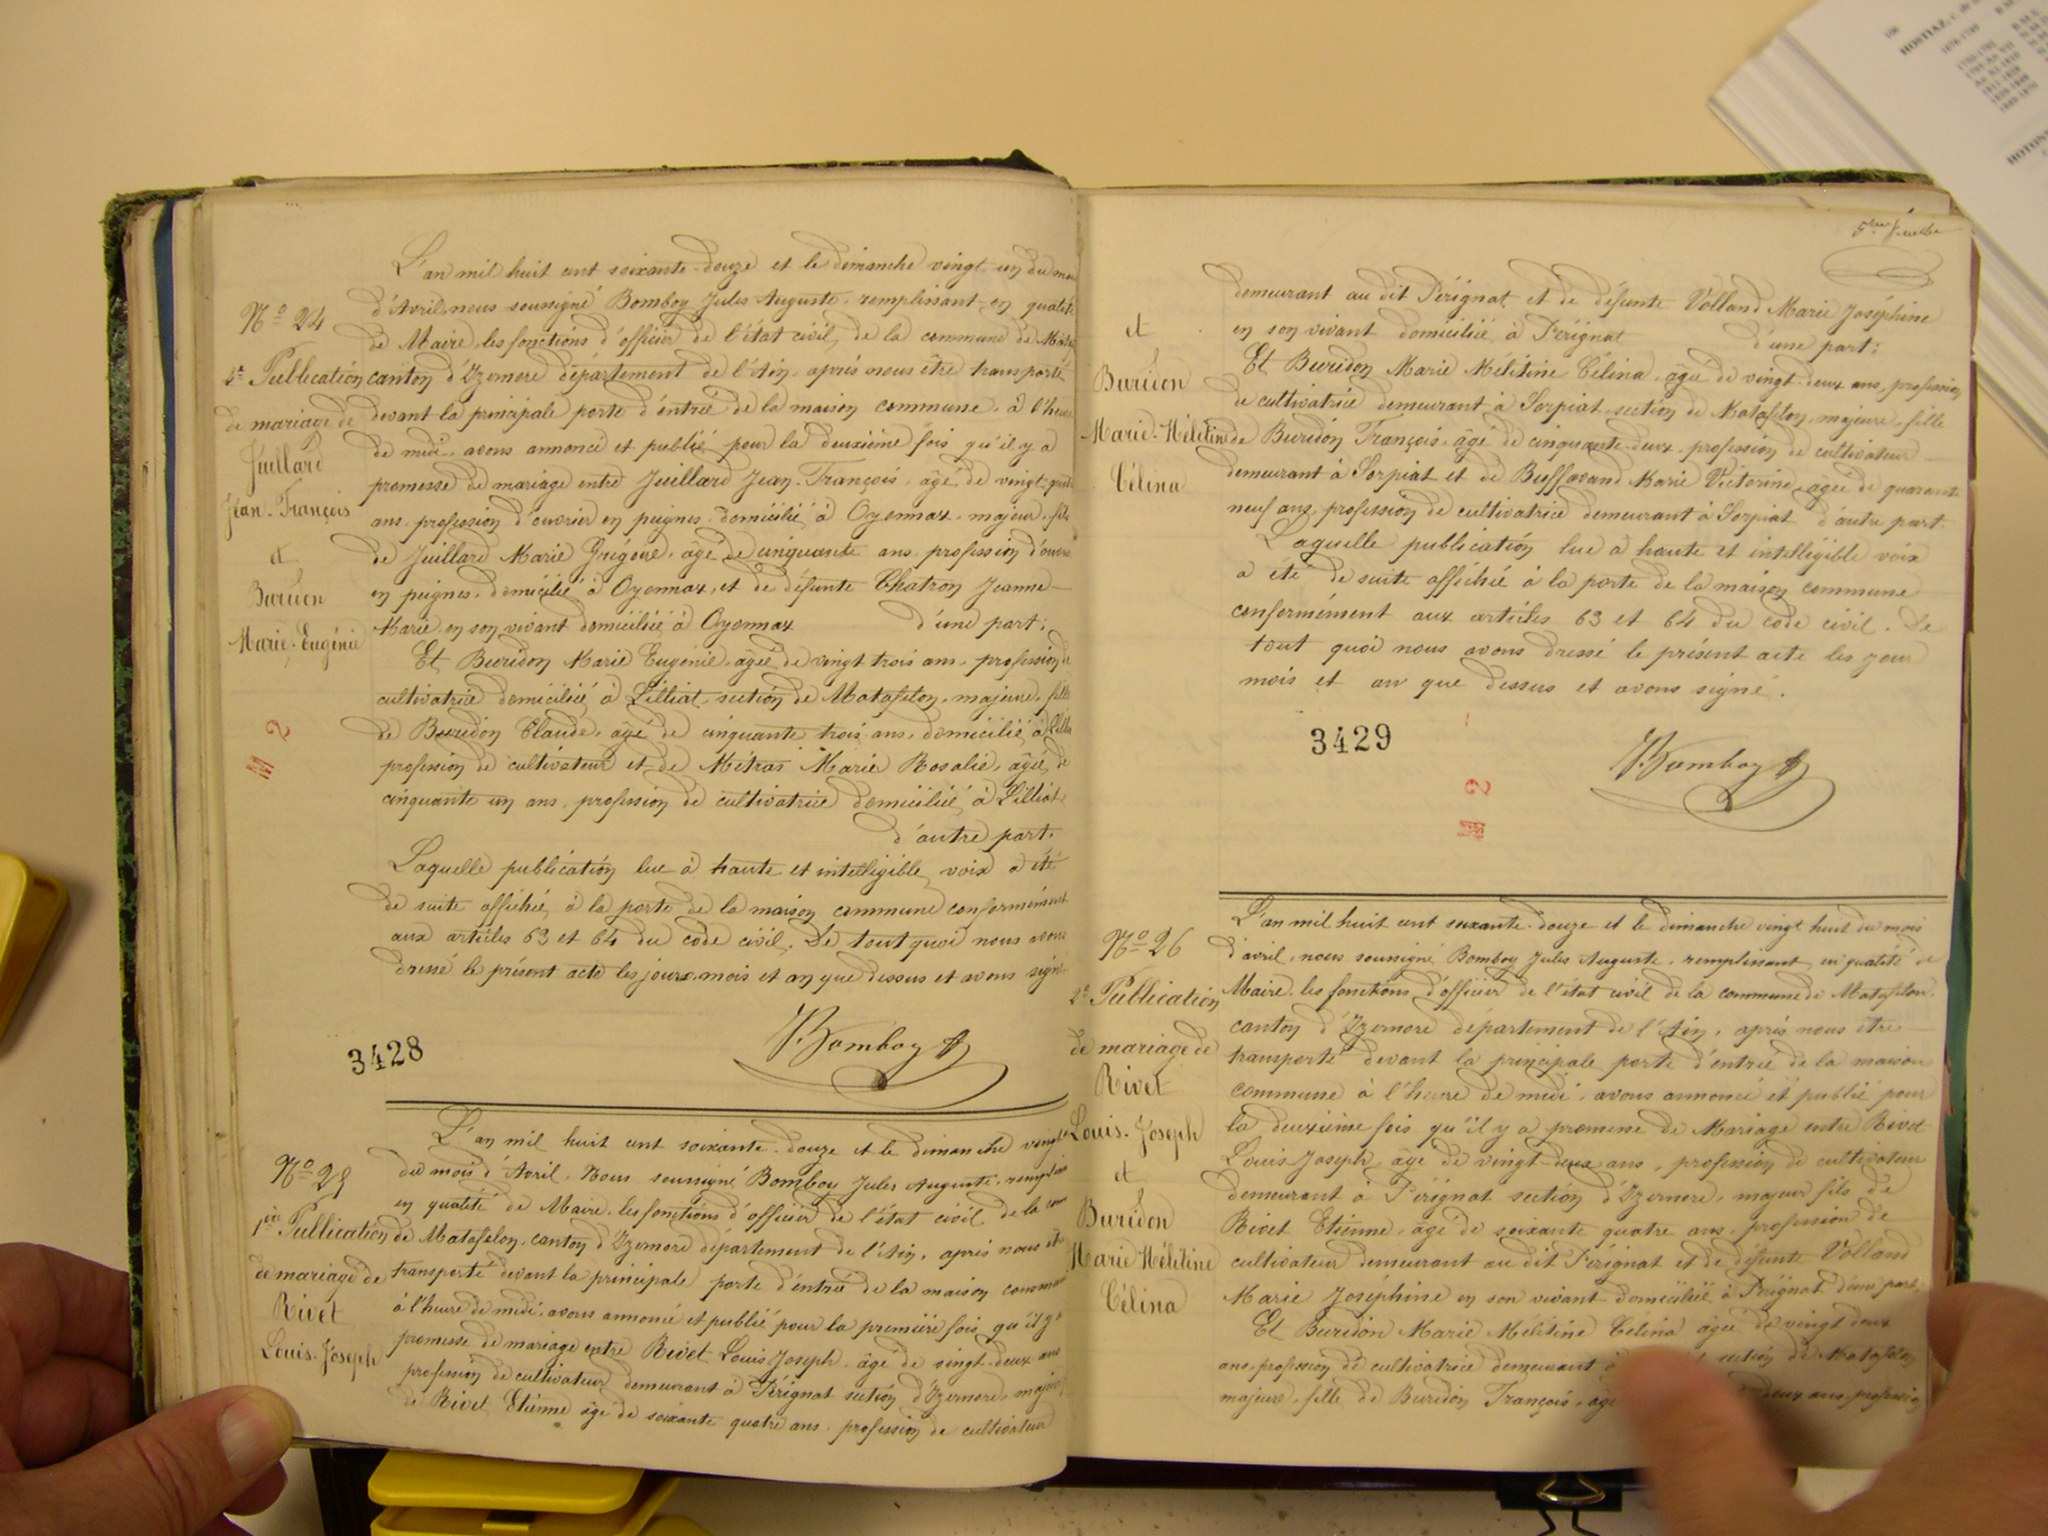 L'an mil huit cent soixante-douze et le dimanche vingt-un du mois
d'Avril, nous soussigné Bomboy Jules Auguste, remplissant en qualité
de Maire, les fonctions d'officier de l'état civil, de la commune de
canton d'Izernore département de l'Ain, après nous être transporté
devant la principale porte d'entrée de la maison commune, à l'heure
de midi, avons annoncé et publié pour la deuxième fois qu'il y a
promesse de mariage entre Juillard Jean-François, âgé de vingt-
ans, profession d'ouvrier en peignes, domicilié à Oyonnax, majeur, fils
de Juillard Marie Grégoire, âgé de cinquante ans, profession
en peignes, domicilié à Oyonnax, et de défunte Chatron Jeanne-
Marie, en son vivant domiciliée à Oyonnax d'une part;
Et Buridon Marie Eugénie, âgée de vingt trois ans, profession de
cultivatrice domiciliée à Lilliat, section de Matafelon, majeure, fille
de Buridon Claude, âgé de cinquante trois ans, domicilié à
profession de cultivateur et de Métras Marie Rosalie, âgée de
cinquante un ans, profession de cultivatrice domiciliée à Lilliat
d'autre part.
Laquelle publication lue à haute et intelligible voix a été
de suite affichée à la porte de la maison commune conformément
aux articles 63 et 64 du code civil. De tout quoi nous avons
dressé le présent acte les jours, mois et an que dessus et avons signé
No 24
2e Publication
de mariage de
Juillard
Jean-François
et
Buridon
Marie-Eugénie
M 2
3428
J. Bomboy
No 25
1ère Publication
de mariage de
Rivet
Louis-Joseph
L'an mil huit cent soixante-douze et le dimanche
du mois d'Avril, Nous soussigné Bomboy Jules Auguste,
en qualité de Maire, les fonctions d'officier de l'état civil de la
de Matafelon, canton d'Izernore département de l'Ain, après nous
transporté devant la principale porte d'entrée de la maison commune
à l'heure de midi, avons annoncé et publié pour la première fois qu'il y a
promesse de mariage entre Rivet Louis Joseph, âgé de vingt-deux ans
profession de cultivateur demeurant à Pérignat section d'Izernore, majeur,
de Rivet Etienne âgé de soixante quatre ans, profession de cultivateur
5me feuille
demeurant au dit Pérignat et de défunte Volland Marie Joséphine
en son vivant domiciliée à Pérignat d'une part;
Et Buridon Marie Mélitine Célina, âgée de vingt-deux ans, profession
de cultivatrice demeurant à Sorpiat section de Matafelon, majeure, fille
de Buridon François, âgé de cinquante-deux, profession de cultivateur
demeurant à Sorpiat et de Buffavand Marie Victorine, âgée de quarante
neuf ans, profession de cultivatrice demeurant à Sorpiat d'autre part.
Laquelle publication lue à haute et intelligible voix
a été de suite affichée à la porte de la maison commune
conformément aux articles 63 et 64 du code civil. De
tout quoi nous avons dressé le présent acte les jour
mois et an que dessus et avons signé.
et
Buridon
Marie-Mélitine
Célina
3429
M 2
J. Bomboy
No 26
2e Publication
de mariage de
Rivet
Louis-Joseph
et
Buridon
Marie Mélitine
Célina
L'an mil huit cent soixante-douze et le dimanche vingt huit du mois
d'avril, nous soussigné Bomboy Jules Auguste, remplissant en qualité de
Maire, les fonctions d'officier de l'état civil de la commune de Matafelon,
canton d'Izernore département de l'Ain, après nous être
transporté devant la principale porte d'entrée de la maison
commune à l'heure de midi, avons annoncé et publié pour
la deuxième fois qu'il y a promesse de Mariage entre Rivet
Louis Joseph, âgé de vingt-deux ans, profession de cultivateur
demeurant à Pérignat section d'Izernore, majeur fils de
Rivet Etienne, âgé de soixante quatre ans, profession de
cultivateur demeurant au dit Pérignat et de défunte Volland
Marie Joséphine en son vivant domiciliée à Pérignat d'une part;
Et Buridon Marie Mélitine Célina âgée de vingt deux
ans, profession de cultivatrice demeurant à section de Matafelon
majeure, fille de Buridon François, âgé deux ans, profession